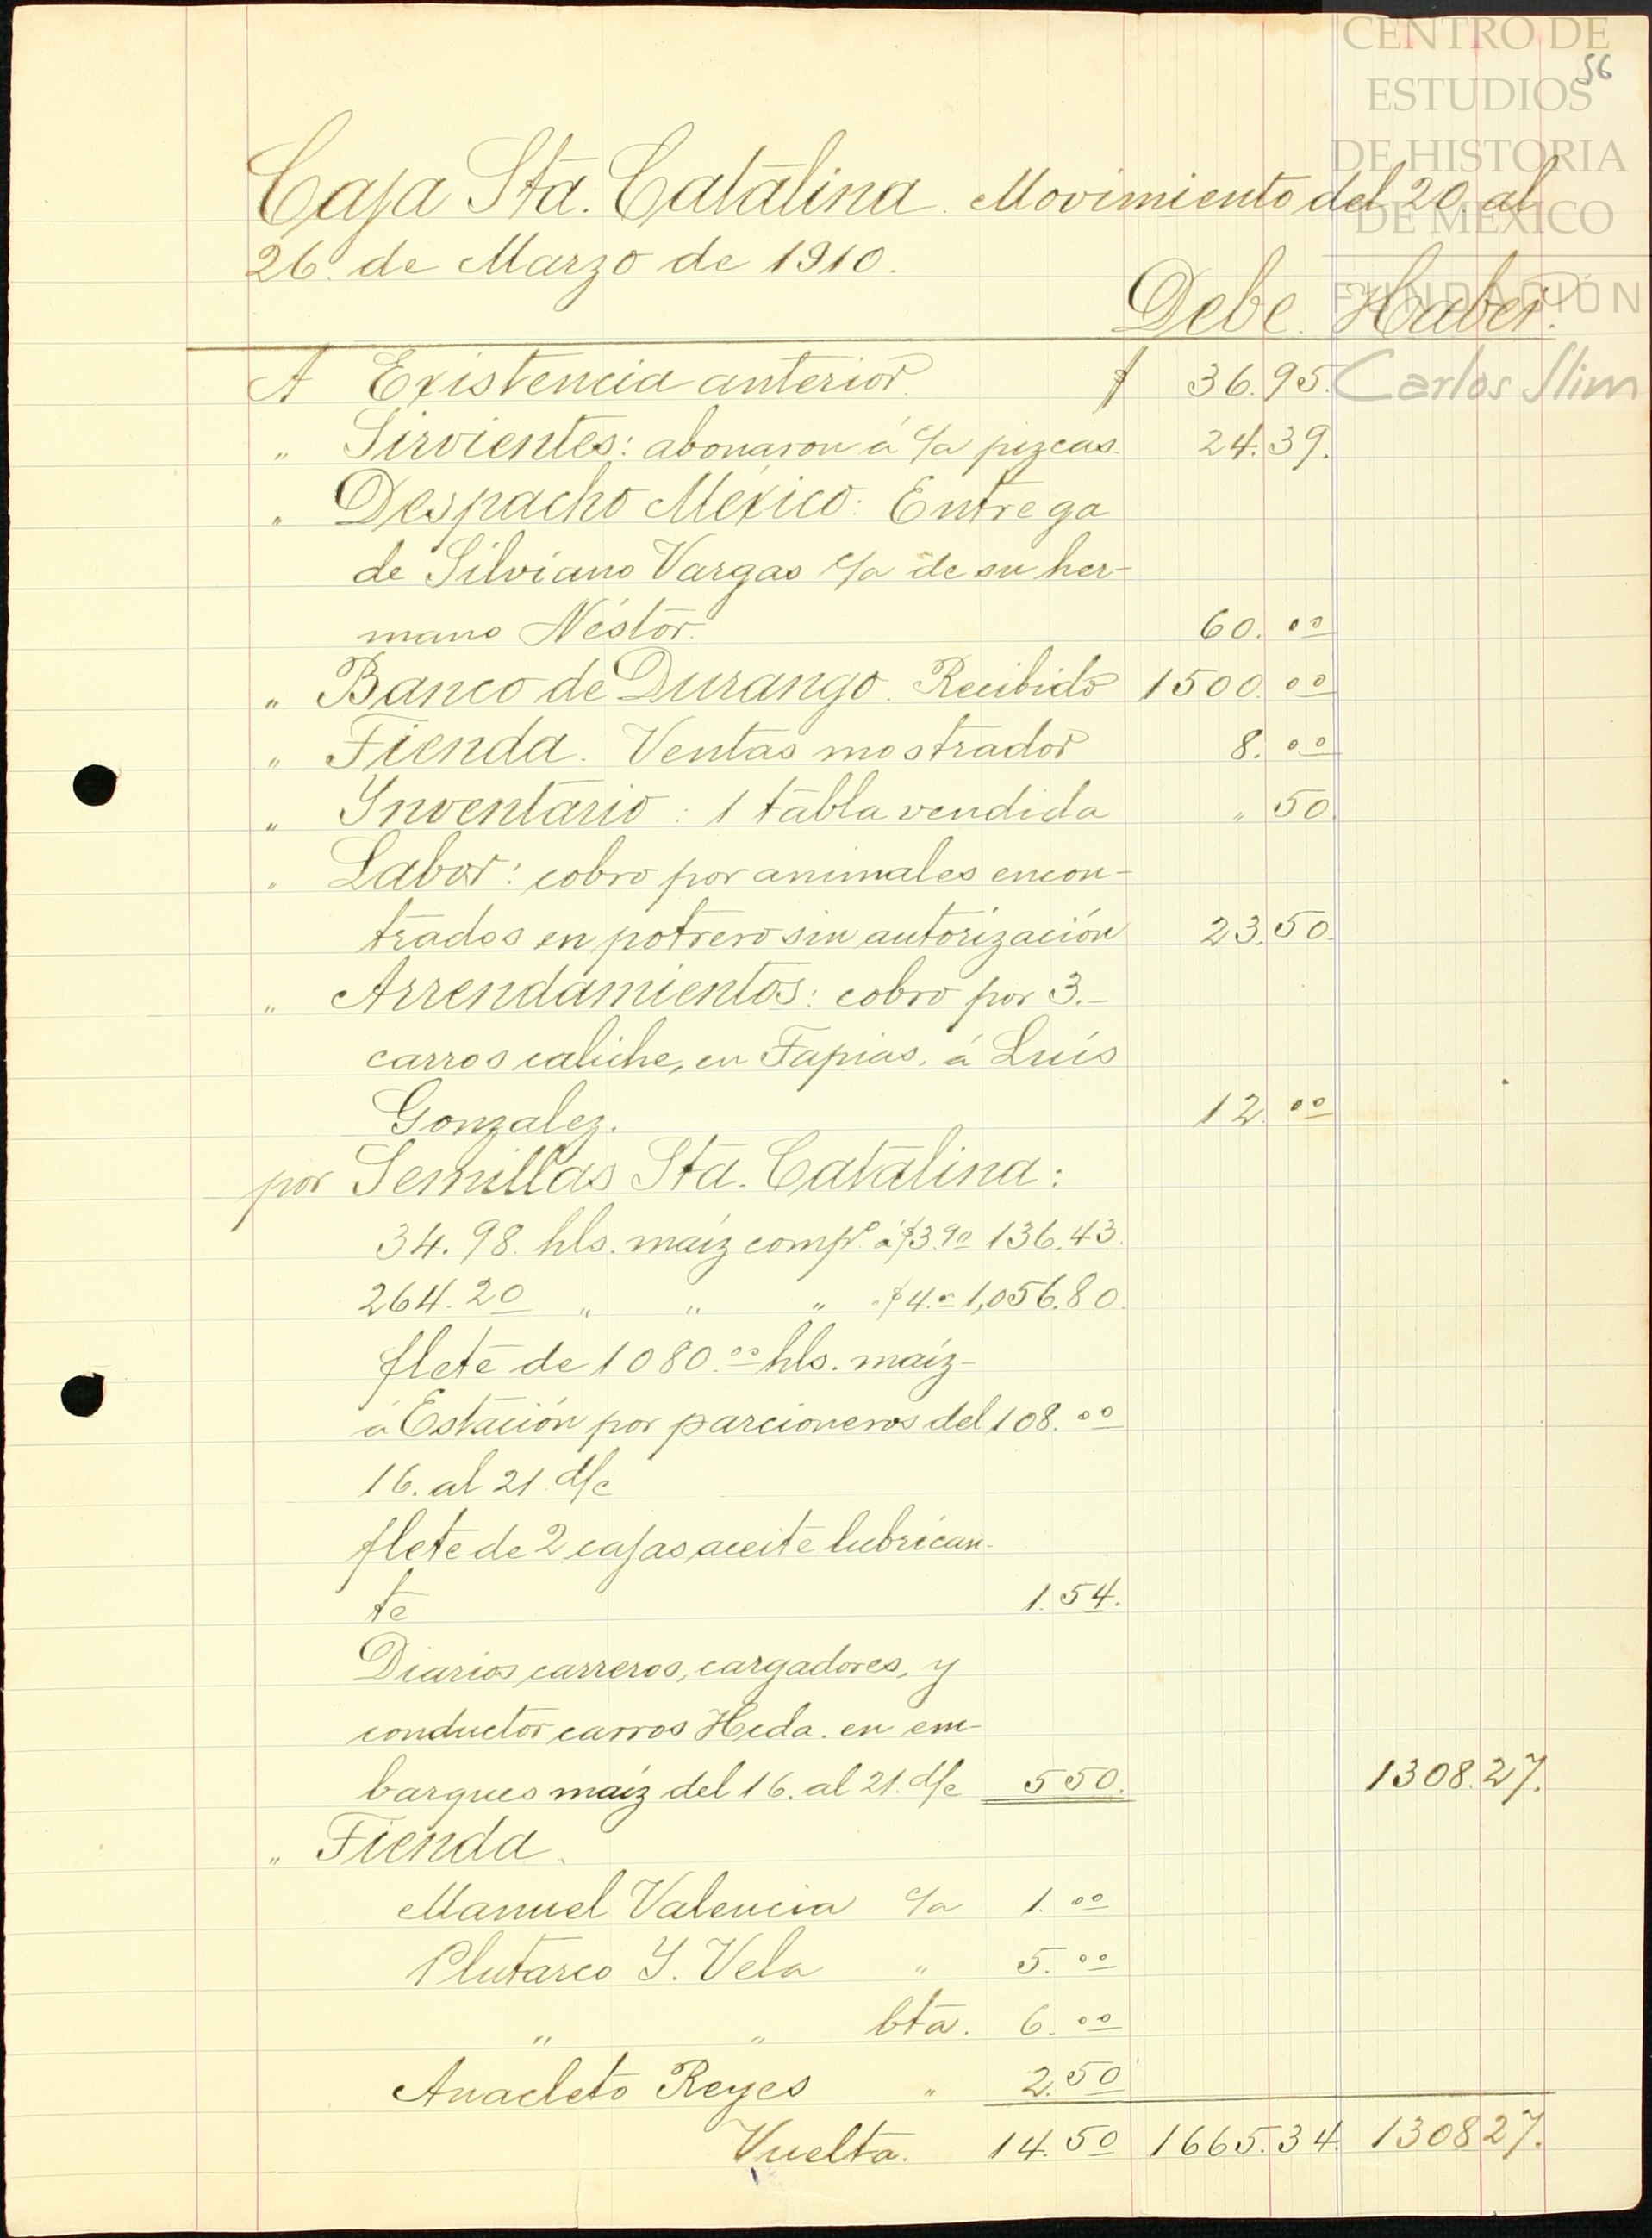 CENTRO DE
56
ESTUDIOS
DE HISTORIA
DE MÉXICO
FUNDACIÓN
Carlos Slim
Caja Sta. Catalina. Movimiento del 20 al
26 de Marzo de 1910.
Debe. Haber.
A Existencia anterior. $ 36.95.
" Sirvientes: abonaron á c/a pizcas. 24.39.
" Despacho México: Entrega
de Silviano Vargas c/a de su her-
mano Néstor. 60.00
" Banco de Durango. Recibido 1500.00
" Tienda. Ventas mostrador 8.00
" Inventario: 1 tabla vendida " 50
" Labor: cobro por animales encon-
trados en potrero sin autorización 23.50.
" Arrendamientos: cobro por 3.-
carros caliche, en Tapias, á Luís
Gonzalez. 12.00
por Semillas Sta. Catalina:
34.98. hls. maíz comp.º á $3.90 136.43.
264.20 " " " " $4.00 1,056.80.
flete de 1080.00 hls. maíz-
á Estación por parcioneros del 108.00
16. al 21. d/c
flete de 2 cajas aceite lubrican-
te 1.54.
Diarios carreros, cargadores, y
conductor carros Hcda. en em-
barques maíz del 16. al 21. d/c 550. 1308.27.
" Tienda.
Manuel Valencia c/a 1.00
Plutarco Y. Vela " 5.00
" " bta. 6.00
Anacleto Reyes " 2.50
Vuelta. 14.50 1665.34. 130827.